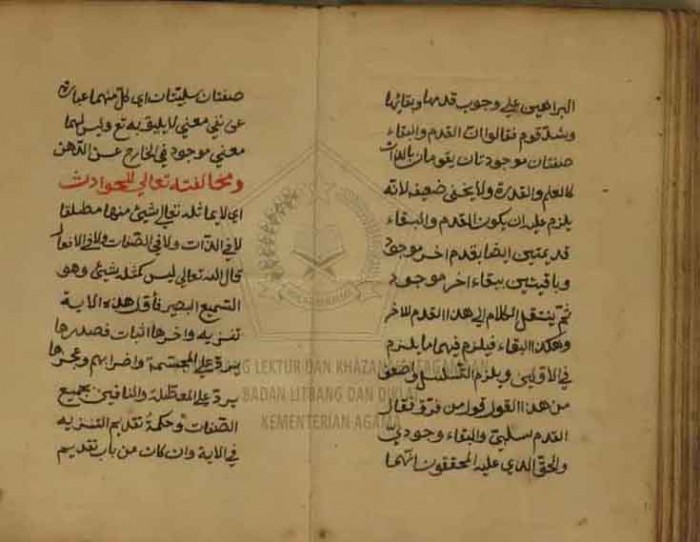 البراهين على وجوب قدمها وبقائها
وشذ قوم فقالوا ان القدم والبقاء
صفتان موجودتان يقومان بالذات
كالعلم والقدرة ولا يخفى ضعيفه لانه
يلزم عليه ان يكون القدم والبقاء
قديمين ايضا بقدم اخر موجود
وباقيتين ببقاء اخر موجود
ثم ينتقل الكلام الى هذا القدم الاخر
وهكذا البقاء فيلزم فيهما ما يلزم
في الاوليين ويلزم التسلسل واضعف
من هذا القول قول من فرق فقال
القدم سلبي والبقاء وجودي
والحق الذي عليه المحققون انهما
صفتان سلبيتان اي كل منهما عبارة
عن نفي معنى لا يليق به تع وليس لهما
معنى موجود في الخارج عن الذهن
ومخالفته تعالى للحوادث
اي لا يماثله تعالى شيئ منها مطلقا
لا في الذات ولا في الصفات ولا في الافعال
قال الله تعالى ليس كمثله شيئ وهو
السميع البصير فاول هذه الاية
تنزيه واخرها اثبات فصدرها
يرد على المجسمة واضرابهم وعجزها
يرد على المعطلة والنافين بجميع
الصفات وحكمة تقديم التنزيه
في الاية وان كان من باب تقديم
LEKTUR DAN KHAZANAH KEAGAMAAN
BADAN LITBANG DAN DIKLAT
KEMENTERIAN AGAMA